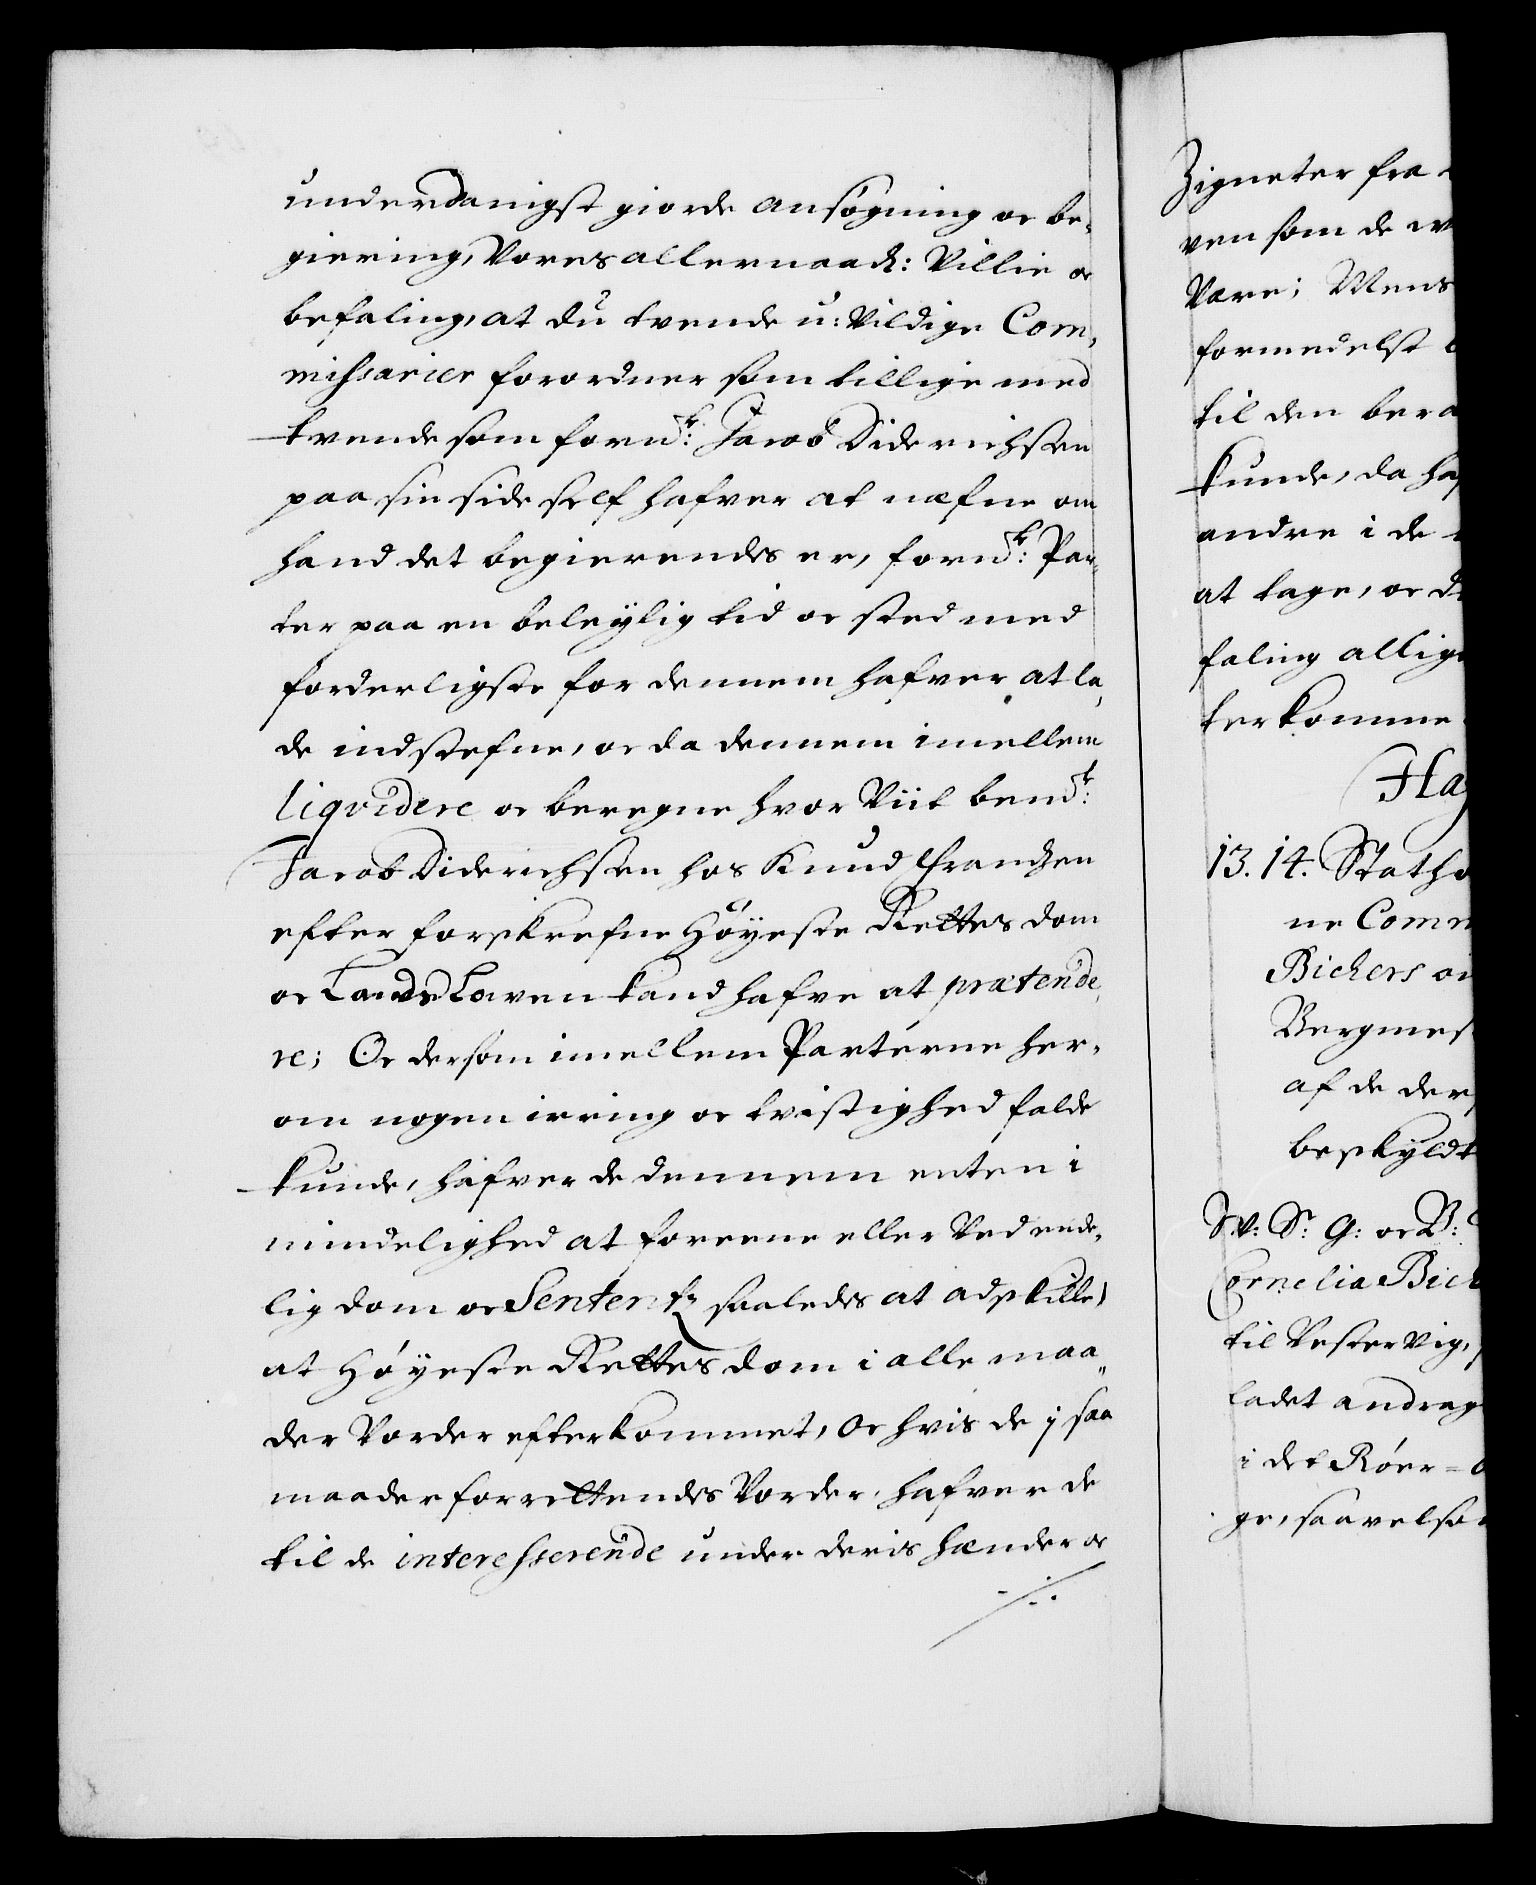 underdanigst giorde ansøgning oc be,
giering, Vores allernaad: Villie oc
befaling, at du tvende u: Vildige Com,
missarier forordner som tillige med
tvende som fornt: Jacob Diderichsen
paa sin side self hafver at nefne om
hand det begierendes er, fornt: Par,
ter paa en beleylig tid oc sted med
forderligste for dennem hafver at la,
de indstefne, oc da dennem imellem
liqvidere oc beregne hvor Viit bemt:
Jacob Diderichsen hos Knud Frandzen
efter forskrefne Höyeste Rettes dom
oc Lands Lowen kand hafve at prætende,
re; Oc dersom imellem Parterne her,
om nogen irring oc tvistighed falde
kunde, hafver de dennem enten i
mindelighed at foreene eller Ved ende,
lig dom oc Sententz saaledes at adskille,
at Höyeste Rettes dom i alle maa,,
der Vorder efterkommet, Oc hvis de j saa
maader forrettendes Vorder, hafver de
til de interesserende under deris hænder oc
./..
Zigneter fra
ven som de
Vare; Mens
formedelst
til den bera
kunde, da haf
andre i de
at tage, oc
faling allige
terkomme
Haf
13. 14. Statho
ne Comm
Bichers
Bergmes
af de der
beskyldt
S.V: Sr. G: oc B:
Cornelia Bich
til Vester Vig,
ladet andrag
i det Röer=
ge, saavelso